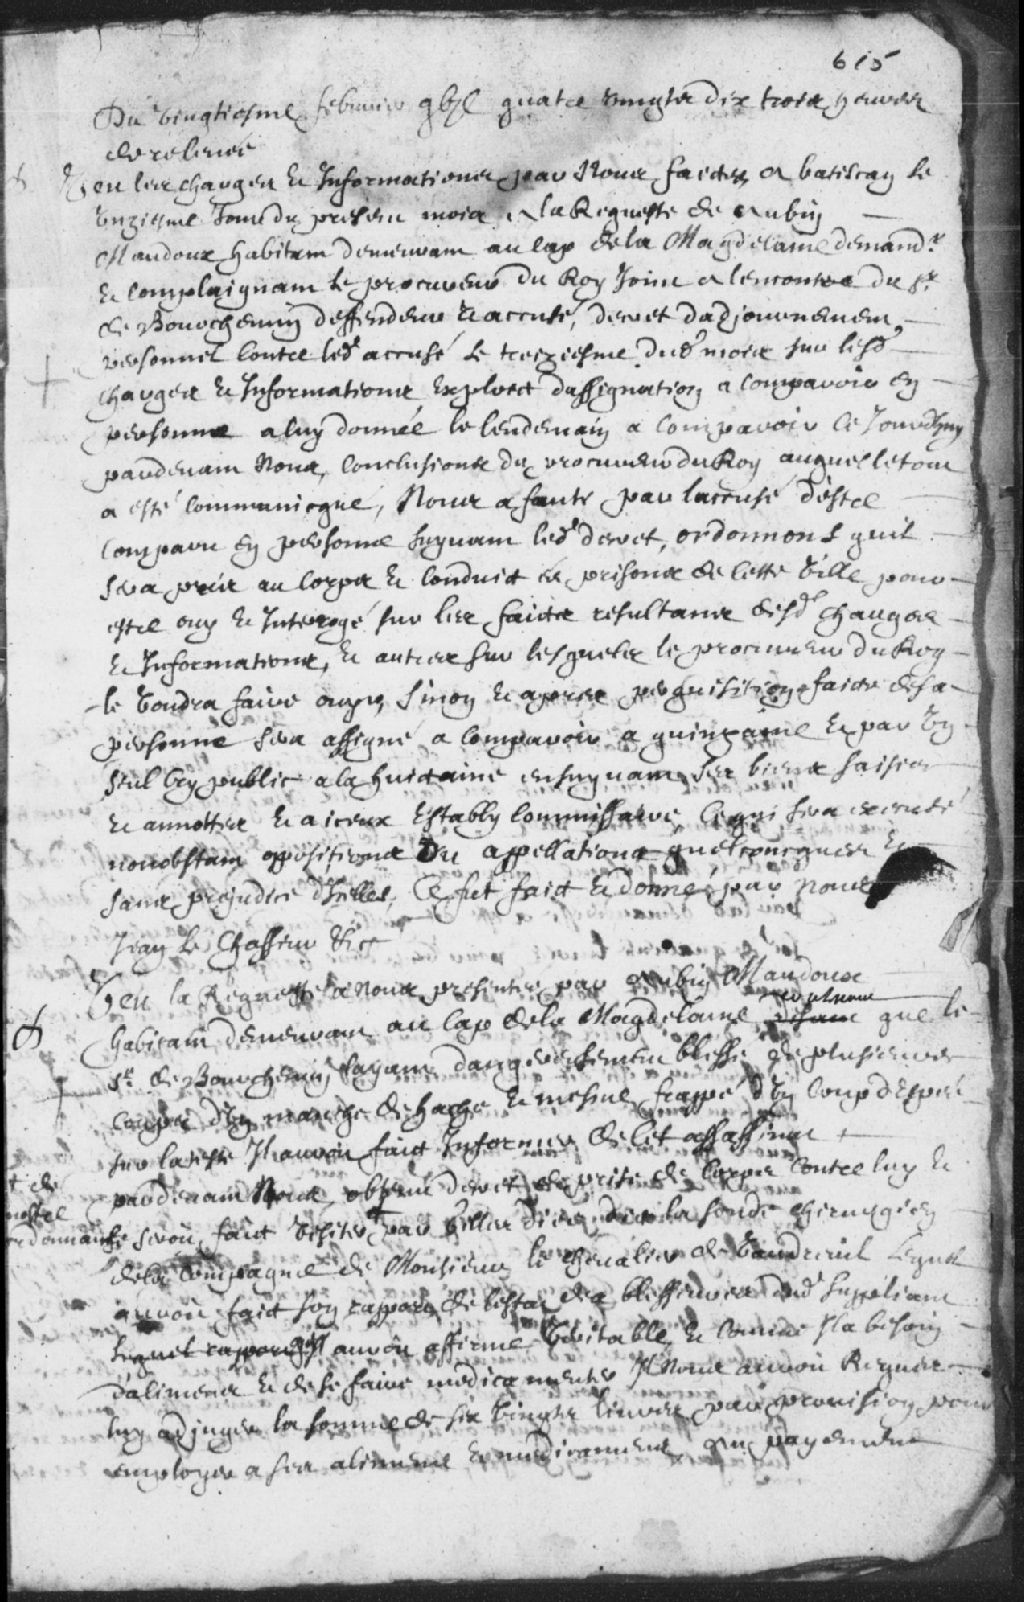 615
Du vingtiesme febvrier gbjC quatre vingts dix trois heures
de relevée
Veu les charges et Informations par Nous faictes a batiscan le
unziesme Jour du present mois a la Requeste de Aubin
Maudoux habitant demeurant au Cap de la Magdelaine demandr
et Complaignant le procureur du Roy Joint a lencontre du Sr
de Bourchemin deffendeur et accusé, decret dadjournement
personnel Contre ledt accusé le treiziesme dudt mois sur lesd
charges et Informations Exploict dassignation a comparoir en
personne a luy donnée le lendemain a comparoir Ce Jourdhuy
pardevant Nous, Conclusions du procureur du Roy auquel le tout
a esté Communicqué, Nous a faute par laccusé d'estre
Comparu en personne suyvant ledt decret, ordonnons quil
sera pris au Corps et Conduit es prisons de Cette Ville pour
estre ouy et Interrogé sur les faicts resultans desd charges
et Informations, et autres sur lesquels le procureur du Roy
le voudra faire ouyr, sinon et apres perquisition faicte de sa
personne sera assigné a comparoir a quinzaine et par un
seul Cry public a la huictaine ensuyvant ses biens saisis
et annottes et a iceux Estably Commissaire Ce qui sera executé
nonobstant oppositions ou appellations quelconques et
sans prejudice d'Icelles, Ce fut faict et donné par nous
Jean le Chasseur &ce
Veu la Requeste a Nous presentée par Aubin Maudoux
habitant demeurant au Cap de la Magdelaine que le
Sr de Bourchemin layant dangereusement blessé de plusieurs
Coups d'un manche de hache et mesme frappé d'un Coup d'Espée
sur la teste Il auroit faict Informer de Cet assassinat
pardevant Nous, obtenu decret de prise de Corps Contre luy et
+ de
nostre
ordonnance
se seroit faict visiter par Gilles dit la fonde chirurgien
de la Compagnie de Monsieur le chevalier de Vaudreuil Lequel
auroit faict son rapport de lestat des blesseures dudt supliant
lequel rapport Il auroit affirmé Veritable, et Comme Il a besoin
d'alimens et de se faire medicamenter Il Nous auroit Requis
luy adjuger la somme de six vingts livres par provision pour
employer a ses alimens et medicamens, au payement